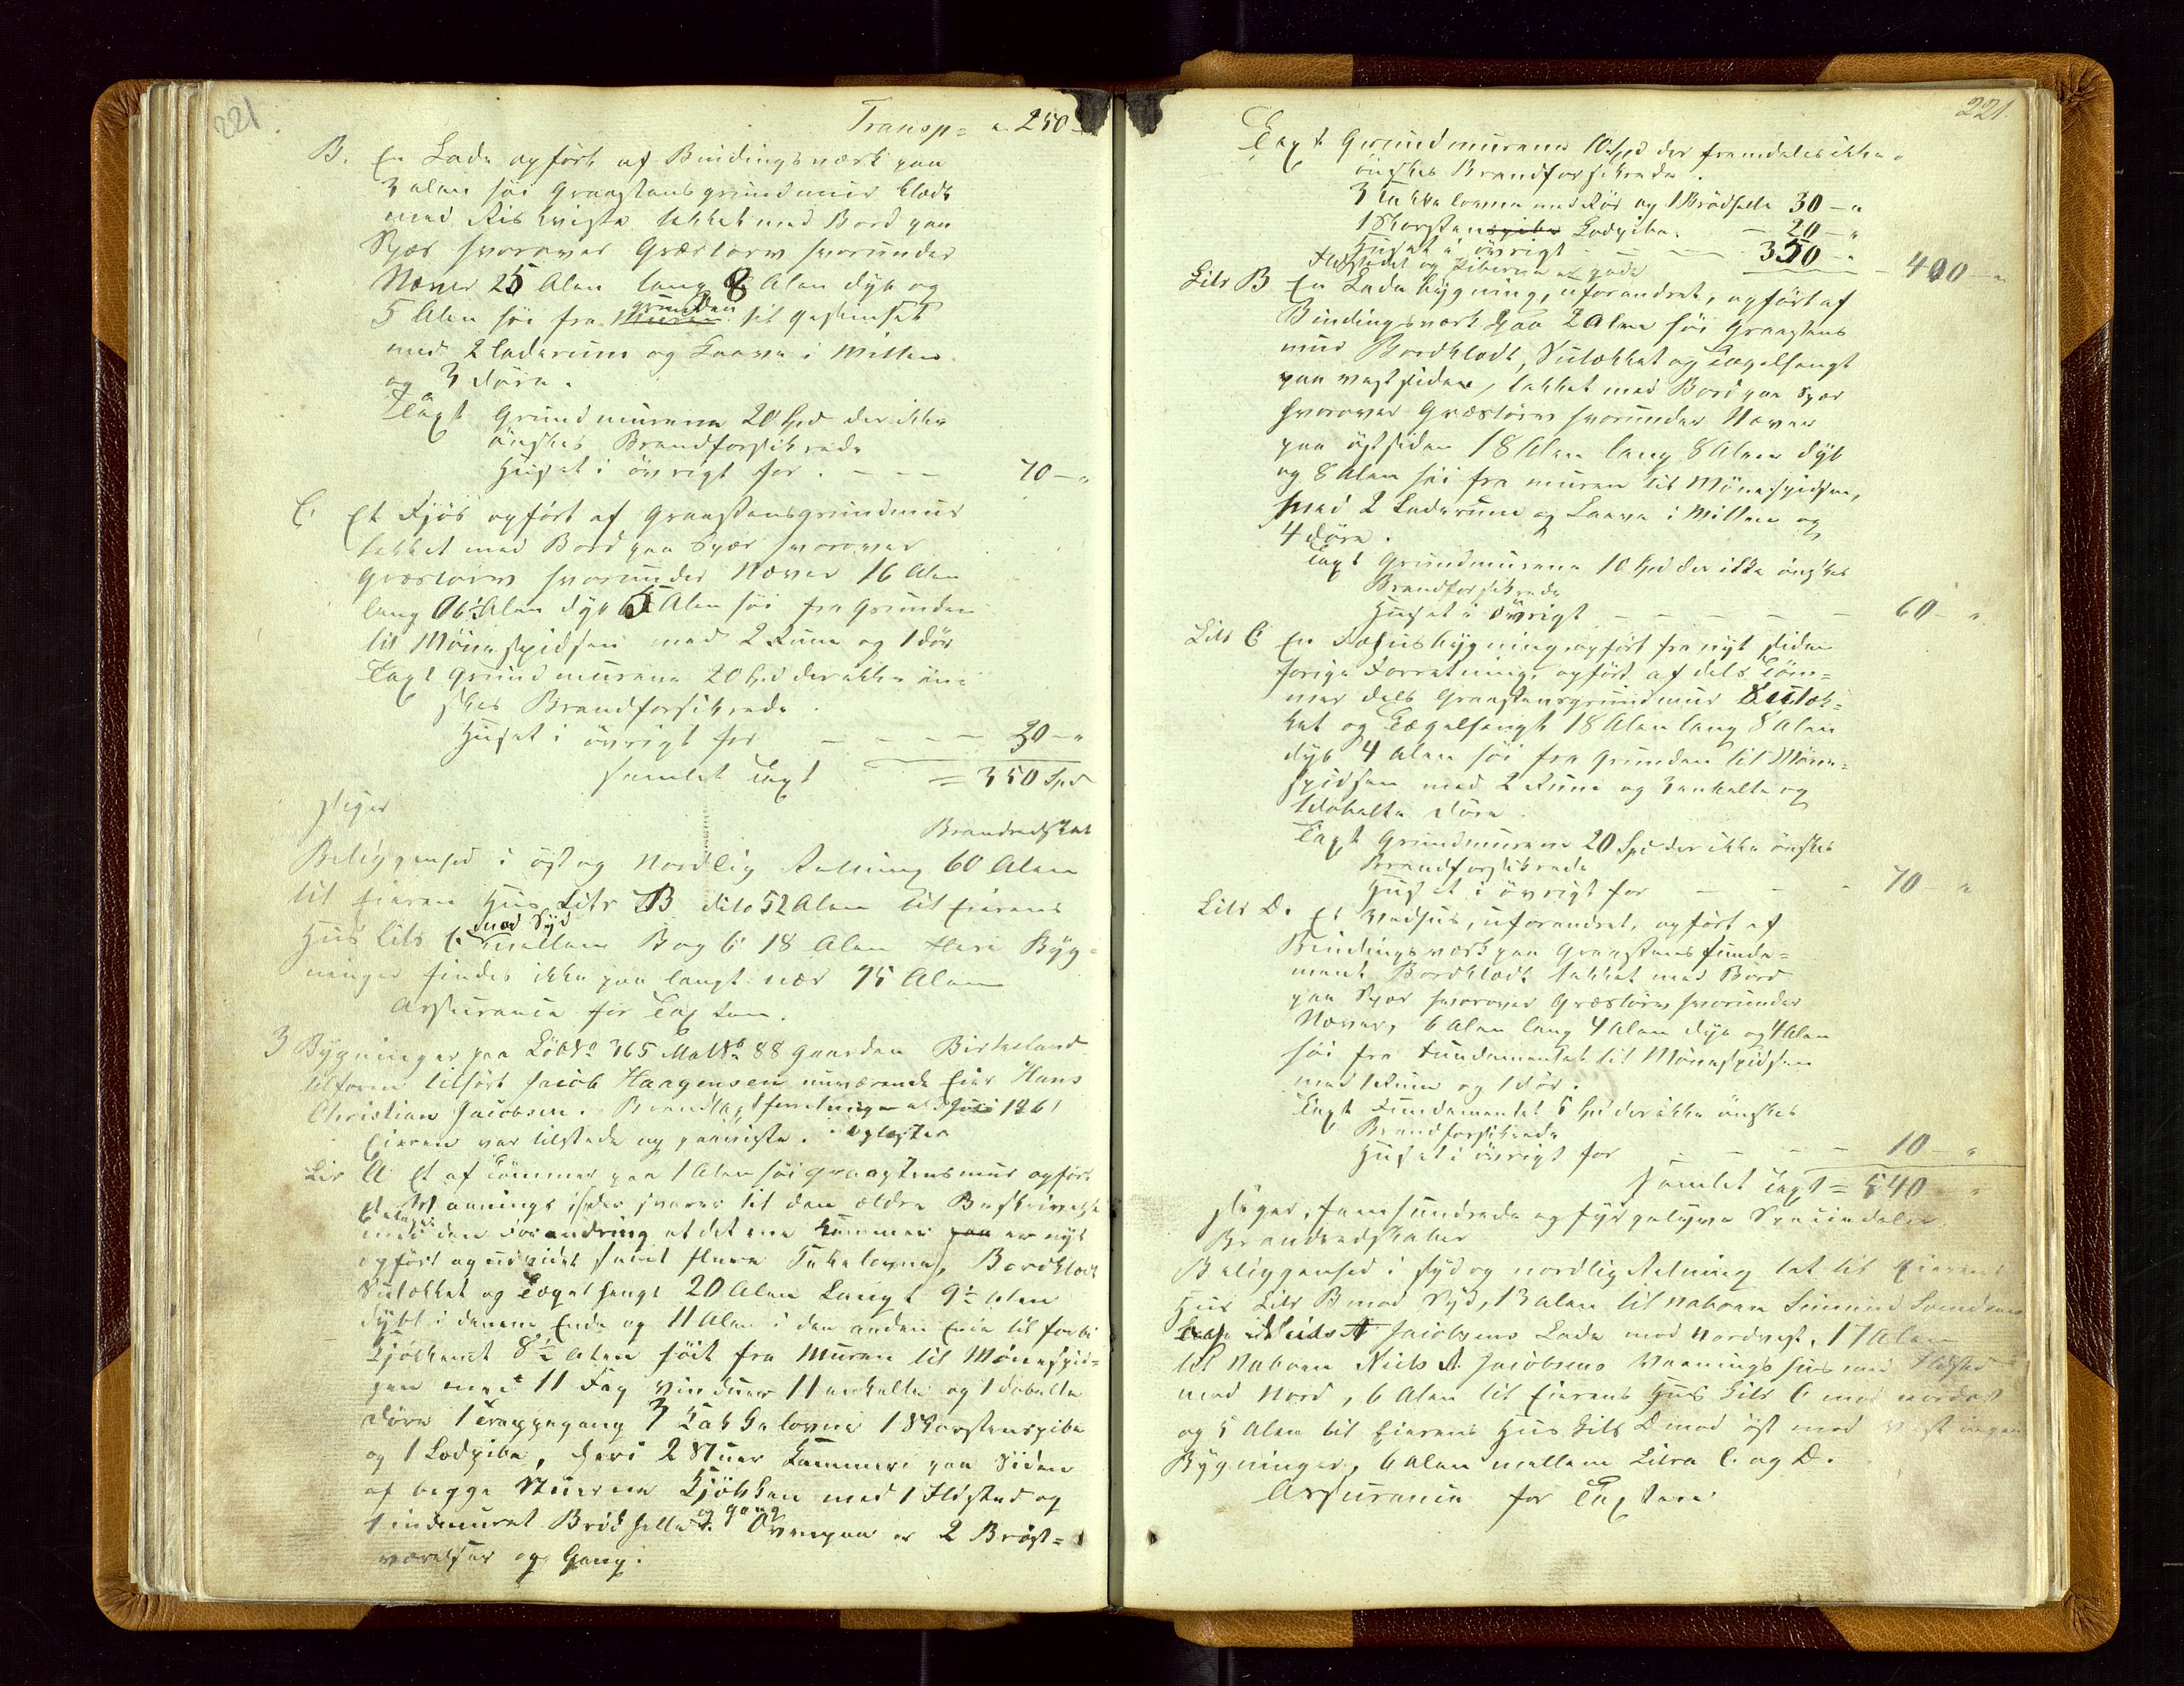 221
Transp = „ 250 -
B. En Lade opført af Bindingsværk paa
3 alen høi Graastensgrundmur klædt
med Riskviste takket med Bord paa
Spær hvorover Græstorv hvorunder
Næver 25 Alen lang 8 Alen dyb og
5 Alen høi fra grunden til Gesimset
med 2 laderum og Laave i Mitten
og 3 døre.
Taxt Grundmurene 20 Spd der ikke
ønskes Brandforsikrede
Huset i øvrigt for . - - - 70 - „
C. Et Fjøs opført af Graastensgrundmur
takket med Bord paa Spær hvorover
Græstorv hvorunder Næver 16 Alen
lang 6½ Alen dyb 5 Alen høi fra Grunden
til Mønespidsen med 2 Rum og 1 dør
Taxt Grundmurene 20 Spd der ikke øn=
skes Brandforsikrede.
Huset i øvrigt for - - - - 30 - „
samlet Taxt = 350 Spd
siger
Brandredskab
Beliggenhed i øst og Nordlig Retning 60 Alen
til Eieren Hus Litr B dito 52 Alen til Eierens
Hus Litr C mod Syd mellem B og C 18 Alen Flere Byg=
ninger findes ikke paa langt nær 75 Alen
Assurance for Taxten.
3 Bygninger paa LöbNo 365 MatNo 88 Gaarden Birkeland
tilforen tilhørt Jacob Haagensen nuværende Eier Hans
Christian Jacobsen. Brandtaxtforretningen af Juli 1861
Eieren var tilstede og paaviste. oplæstes
Litr A Et af Tømmer paa 1 Alen høi Graastensmur opført
Waaningshus der svarer til den ældre Beskrivelse
med den Forandring at det ene Kammer er nyt
opført og udvidet samt flere Takelovne, Bordklædt
Sutækket og Tegelhengt 20 Alen Langt 9½ Alen
dybt i denene Ende og 11 Alen i den anden Ende til forbi
Kjøkkenet 8½ Alen høit fra Muren til Mønespid=
sen med 11 Fag Vinduer 11 enkelte og 1 dobelte
døre 1 Trappegang 3 Kakkelovne 1 Skorstenspibe
og 1 Lodpibe, deri 2 Stuer Kammere paa Siden
af begge Stuerne Kjøkken med 1 Ildsted og
1 indmuret Brødhelle og Gang Ovenpaa er 2 Bryst=
værelser og Gang.
221.
Taxt Grundmurene 10 Spd der fremdeles ikke
ønskes Brandforsikrede.
3 Kakkelovne med Rør og 1 Brødhelle 30 - „
1 Skorstenspibe Lodpibe. - 20 - „
Huset i øvrigt - - - 350 - „ - 400 - „
Ildstedet og Piberne er gode
Litr B En Ladebygning, uforandret, opført af
Bindingsværk paa 2 Alen høi Graastens
mur Bordklædt, Sutækket og Tegelhengt
paa vestsiden, takket med Bord paa Spær
hvorover Græstorv hvorunder Næver
paa østsiden 18 Alen lang 8 Alen dyb
og 8 Alen høi fra muren til Mønespidsen,
med 2 Laderum og Laave i Mitten og
4 døre.
Taxt Grundmurene 10 Spd der ikke ønskes
Brandforsikrede
Huset i Øvrigt - - - - 60 - „
Litr C En Fæhusbygning opført fra nyt siden
forige Forretning, opført af dels Tøm=
mer dels Graastensgrundmur Sutæk=
ket og Tegelhengt 18 Alen lang 8 Alen
dyb 4 Alen høi fra Grunden til Møne=
spidsen med 2 Rum og 3 enkelte og
1 dobelte døre.
Taxt Grundmurene 20 Spd der ikke ønskes
Brandforsikrede
Huset i øvrigt for - - - 70 - „
Litr D. Et Vedhus, uforandret, opført af
Bindingsværk paa Graastens funda=
ment Bordklædt takket med Bord
paa Spær hvorover Græstorv hvorunder
Næver, 6 Alen lang 4 Alen dyb og 4 Alen
høi fra Fundamentet til Mønespidsen
med 1 Rum og 1 dør.
Taxt Fundamentet 5 Spd der ikke ønskes
Brandforsikrede
Huset i øvrigt for - - - - 10 - „
samlet Taxt = 540 „
siger, femhundrede og fyrgetyve Speciedaler.
Brandredskaber
Beliggenhed i Syd og nordlig Retning tæt til Eierens
Hus Litr B mod Syd, 13 Alen til Naboen
Jacobsens Lade mod Nordvest, 17 Alen
til Naboen Niels A. Jacobsens Waaningshus med Ildsted
mod Nord, 6 Alen til Eierens Hus Litr C mod nordost
og 5 Alen til Eierens Hus Litr D mod øst mod Vest ingen
Bygninger, 6 Alen mellem Litra C. og D.
Assurance for Taxten